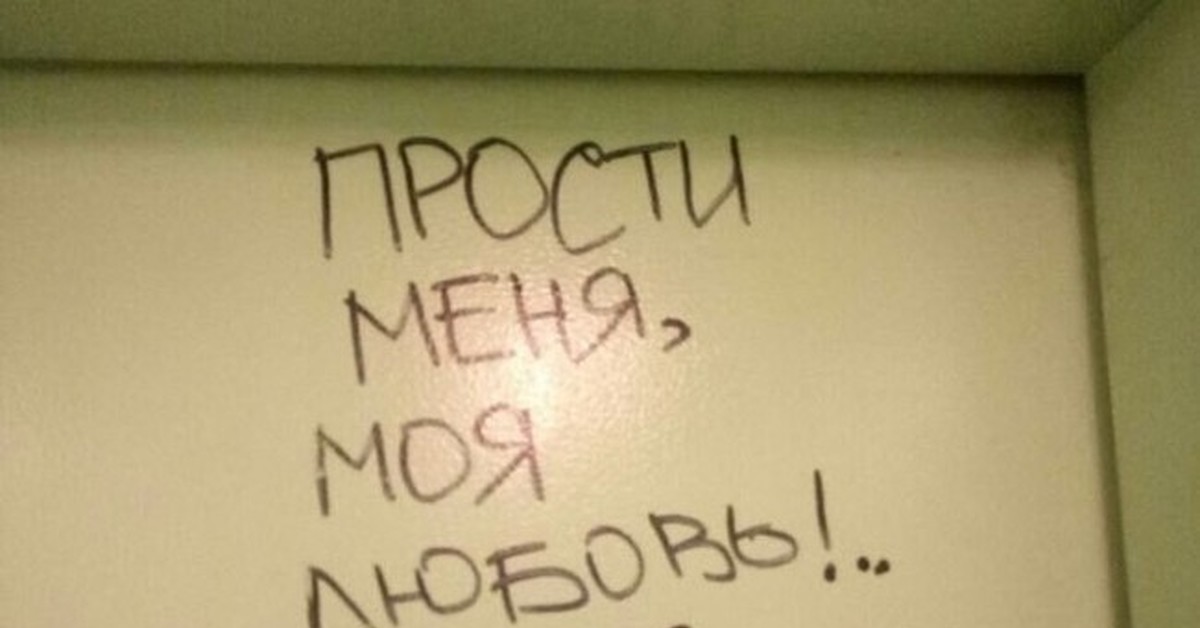 ПРОСТИ
МЕНЯ,
МОЯ
ЛЮБОВЬ!..